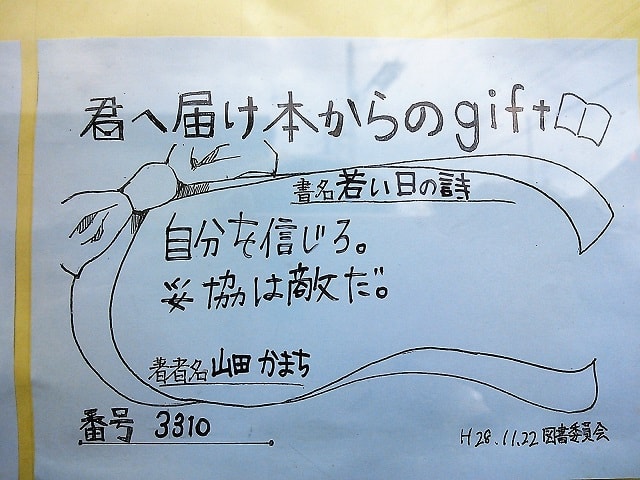 君へ届け本からのgift
書名 若い日の詩
自分を信じろ。
妥協は敵だ。
著者名 山田かまち
番号 3310
H28.11.22 図書委員会